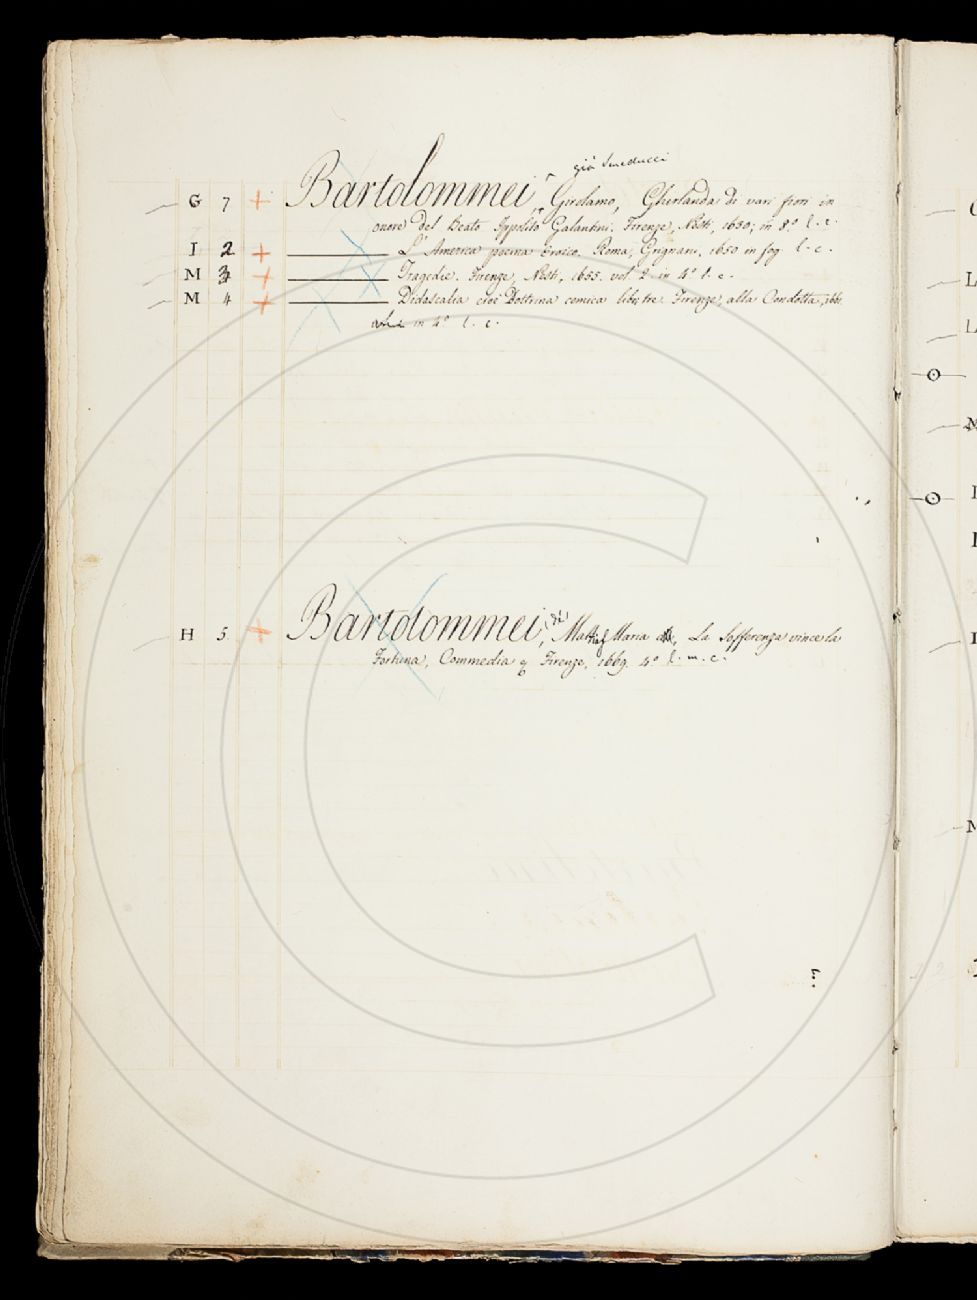 già Smeducci
G 7 + Bartolommei, Girolamo, Ghirlanda di vari fiori in
onore del Beato Ippolito Galantini. Firenze, Nesti, 1650; in 8.º l. c.
I 2 + L'America poema Eroico. Roma, Grignani, 1650 in fog l. c.
M 3 + Tragedie. Firenze, Nesti, 1655. vol 2 in 4º l. c.
M 4 + Didascalia cioè Dottrina comica libri tre. Firenze, alla Condotta, 1661
in 4º l. c.
H 5 + Bartolommei, Mattias Maria de, La Sofferenza vince la
Fortuna, Commedia Firenze, 1669. 4º l. m. c.